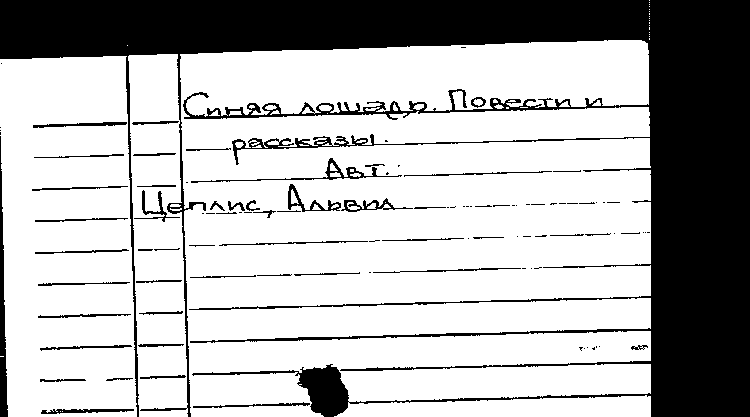 Синяя лошадь. Повести и
рассказы.
Авт.:
Цеплис, Альвил